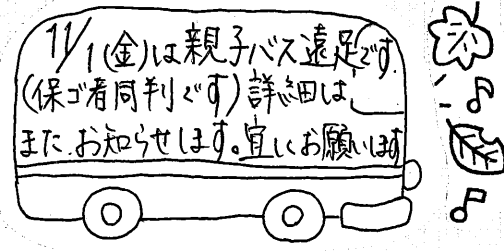 11/1(金)は親子バス遠足です.
(保ゴ者同判です)詳細は、
また、お知らせします。宜しくお願いします